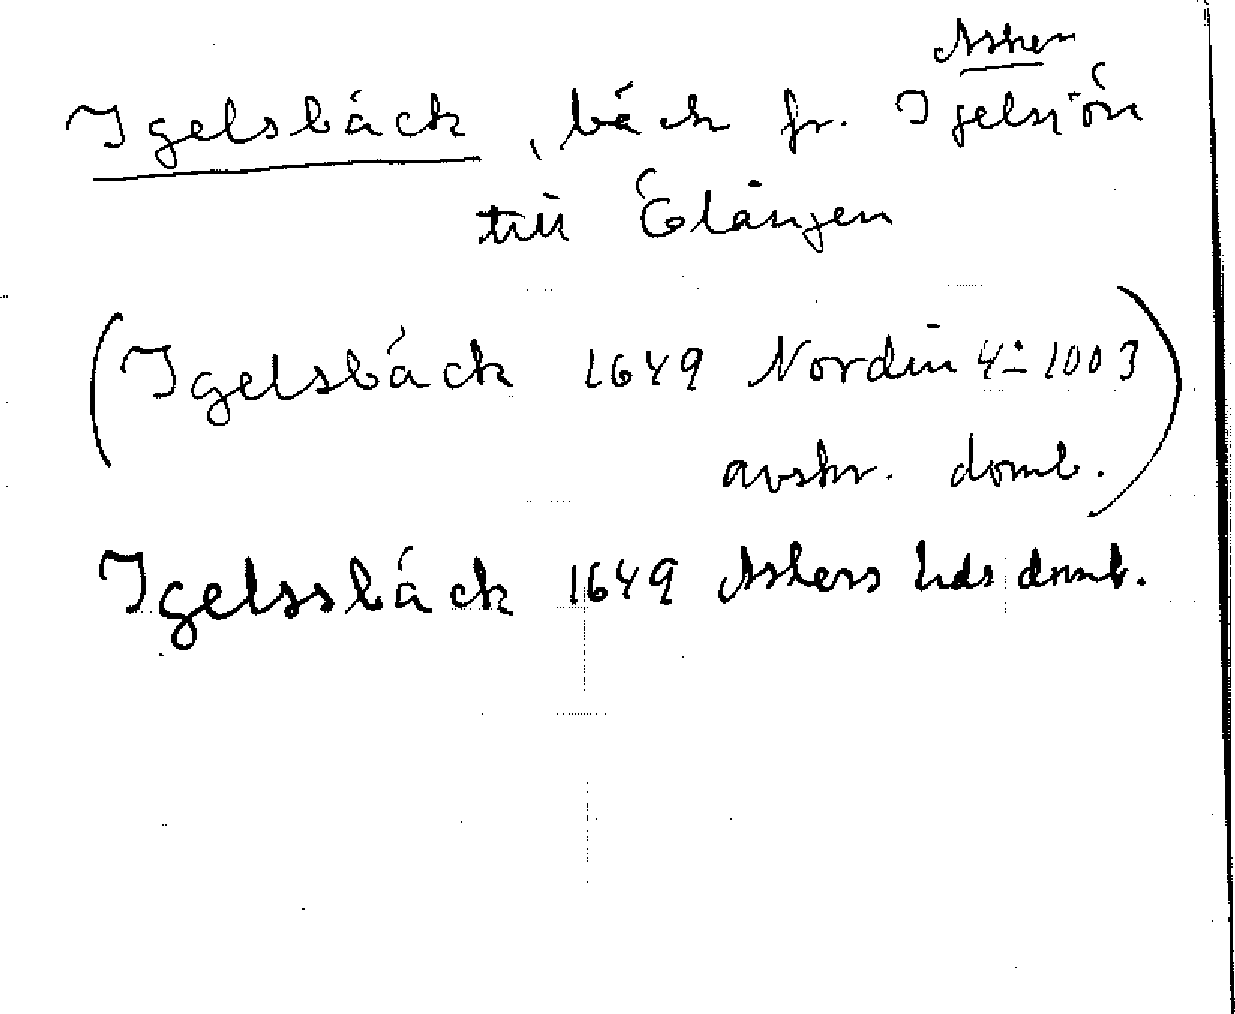 Asker
Igelsbäck, bäck fr. Igelsjön
till Ölången
(Igelsbäck 1649 Nordin 4:o 1003
avskr. domb.)
Igelssbäck 1649 Askers hds domb.